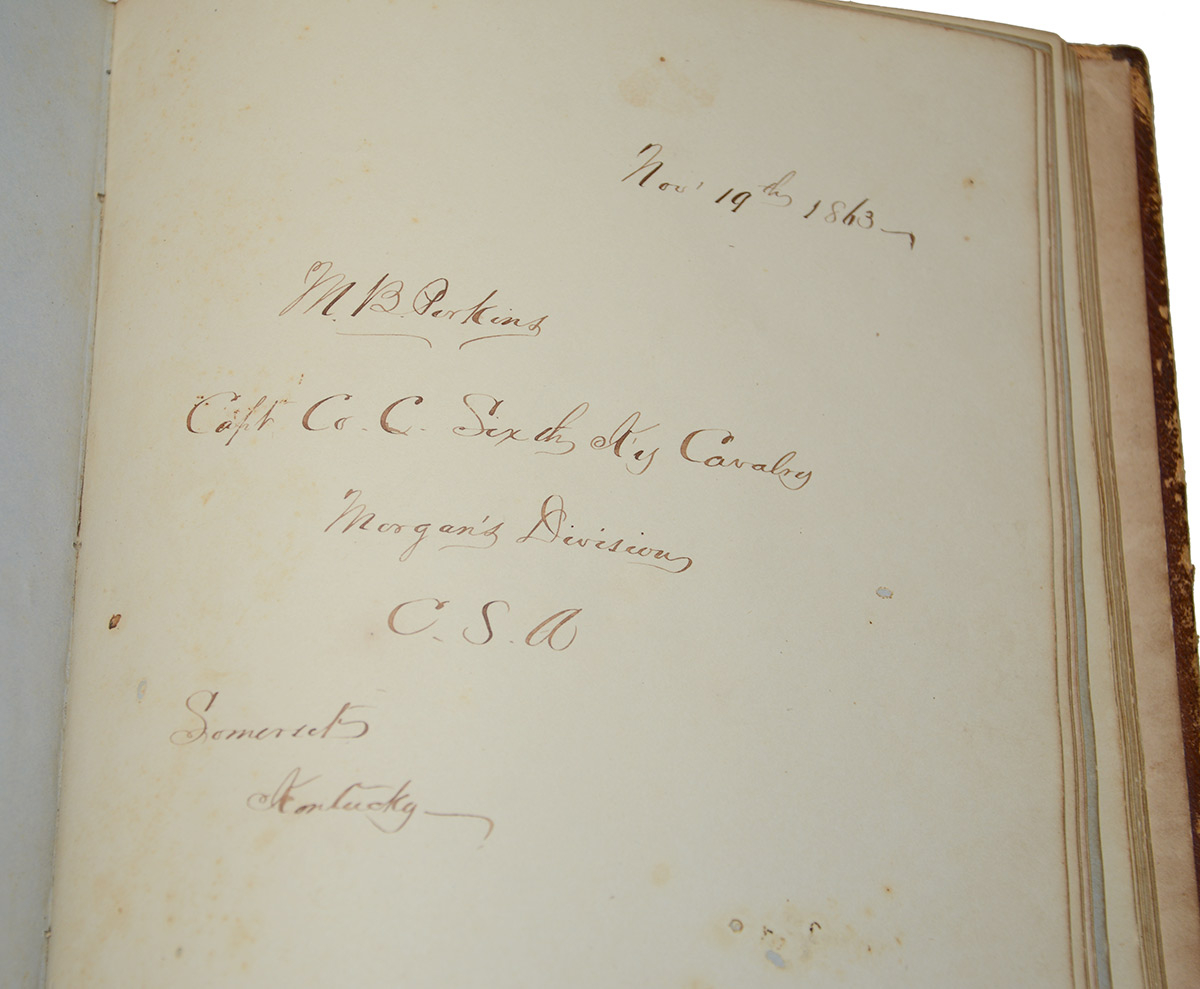 Nov' 19th 1863
M. B. Perkins
Capt Co. C. Sixth K'y Cavalry
Morgan's Division
C. S. A
Somerset
Kentucky